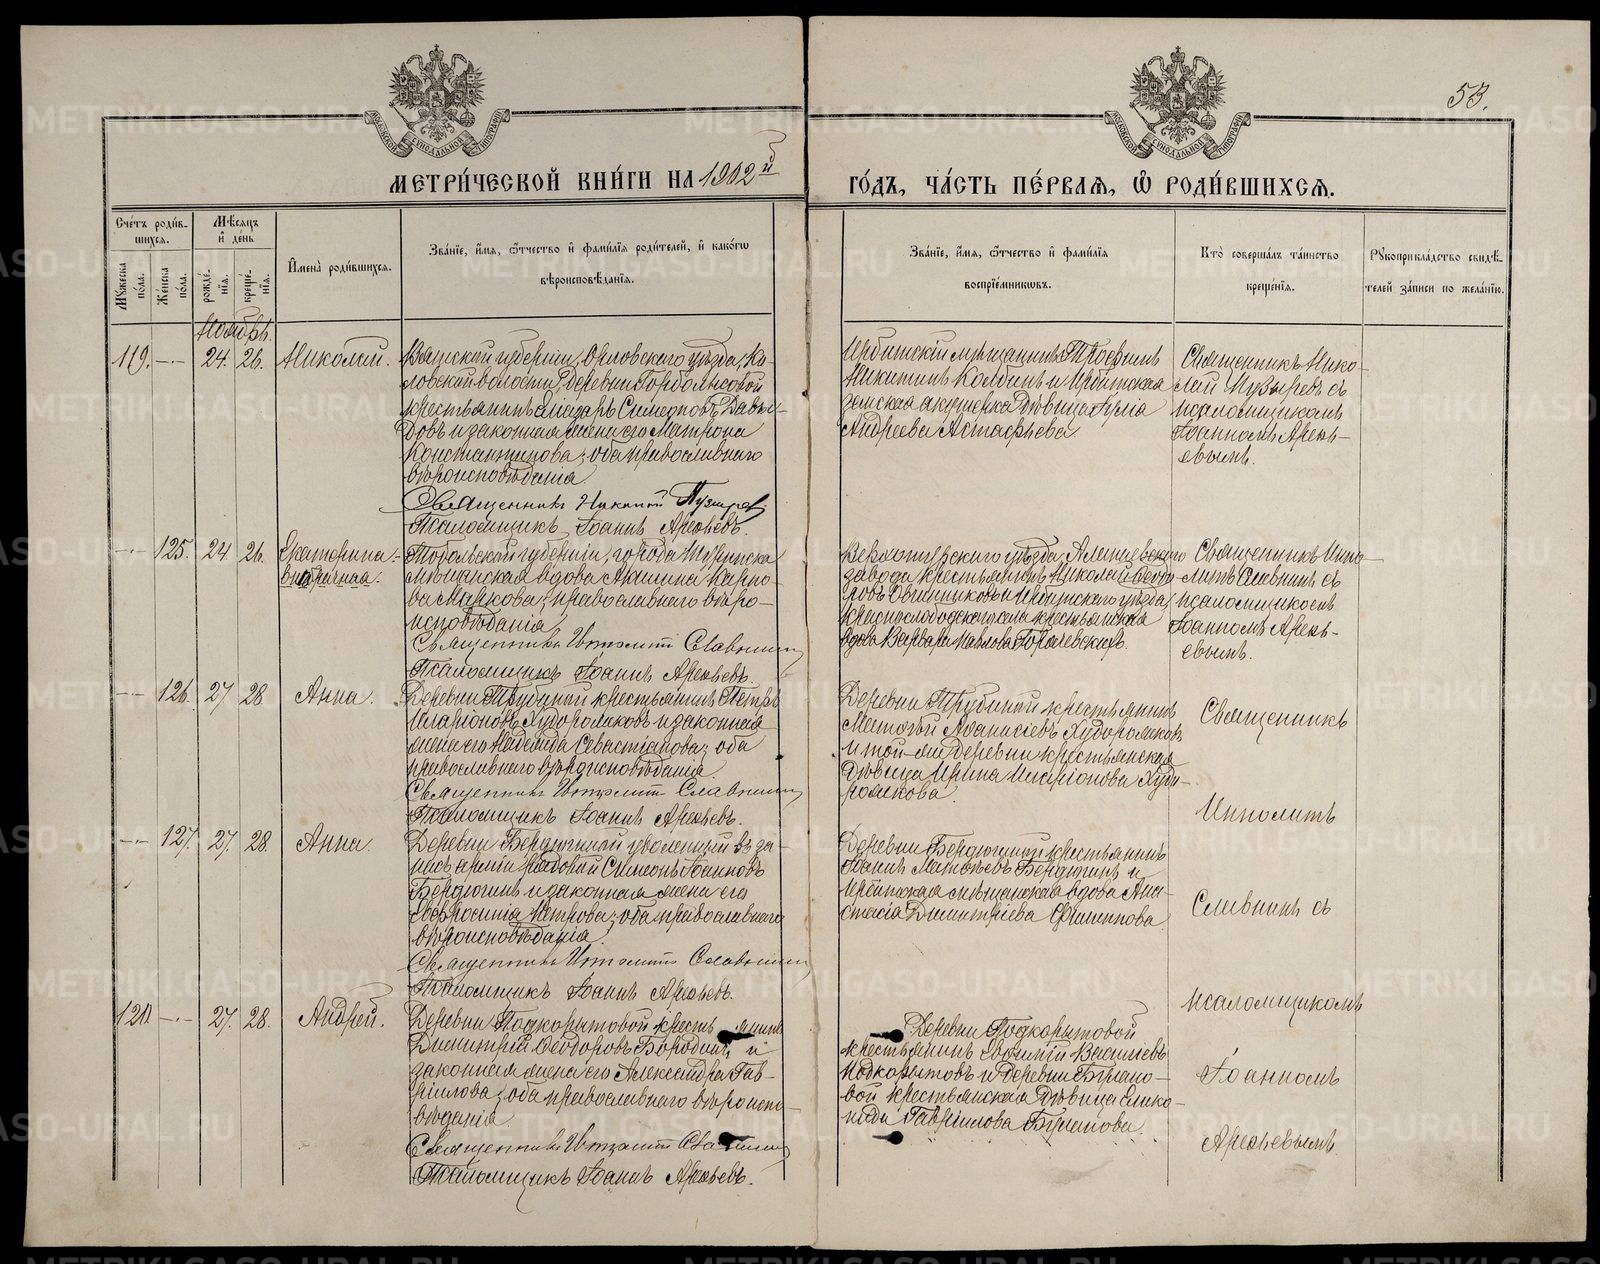 53.
МЕТРИ́ЧЕСКОЙ КНИ́ГИ НА 1902й ГО́ДЪ, ЧА́СТЬ ПЕ́РВАЯ, Ѡ҆ РОДИ́ВШИХСЯ.
Сче́тъ роди́в-
шихся.
Му́жеска по́ла.
Же́нска по́ла.
Мѣ́сяцъ
и҆ де́нь
рожде́-
нїя.
креще́-
нїя.
И҆мена̀ роди́вшихся.
Зва́нїе, и҆́мя, ѻ҆́тчество и҆ фами́лїя роди́телей, и҆ како́гѡ
вѣроисповѣ́данїя.
Зва́нїе, и҆́мя, ѻ҆́тчество и҆ фами́лїя
воспрїе́мникѡвъ.
Кто̀ соверша́лъ та́инство
креще́нїя.
Рꙋкоприкла́дство свидѣ́-
телей за́писи по жела́нїю.
Ноябрь.
119. -.- 24. 26. Николай.
Вятской губерніи, Орловскаго уѣзда, Ко-
ловской волости, деревни
крестьянинъ Симеоновъ Давы-
довъ и законная жена его Матрона
Константинова; оба православнаго
вѣроисповѣданія
Священникъ
Псаломщикъ Іоаннъ Арефьевъ.
Ирбитскій мѣщанинъ Трофимъ
Никитинъ Колбинъ и Ирбитская
земская акушерка дѣвица
Андреева Астафьева.
Священникъ Нико-
лай Пузыревъ съ
псаломщикомъ
Іоанномъ Арефь-
евымъ.
-.- 125. 24 26. Екатерина-
внебрачная.
Тобольской губерніи, города Туринска
мѣщанская вдова Карпо-
ва Маркова; православнаго вѣро-
исповѣданія
Священникъ Ипполитъ Славнинъ
Псаломщикъ Іоаннъ Арефьевъ.
Верхотурскаго уѣзда, Алапаевскаго
завода крестьянинъ Николай Ѳедо-
ровъ Овчинниковъ и Ирбитскаго уѣзда,
Краснослободскаго села крестьянская
вдова Варвара Павлова
Священникъ Иппо-
литъ Славнинъ съ
псаломщикомъ
Іоанномъ Арефь-
евымъ.
-.- 126. 27 28 Анна.
Деревни Трубиной крестьянинъ Петръ
Иларіоновъ Худорожковъ и законная
жена его Надежда Севастіанова; оба
православнаго вѣроисповѣданія.
Священникъ Ипполитъ Славнинъ
Псаломщикъ Іоаннъ Арефьевъ.
Деревни Трубиной крестьянинъ
Аѳанасіевъ Худорожковъ
и той же деревни крестьянская
дѣвица Ирина Иларіонова Худо-
рожкова.
-.- 127. 27. 28 Анна.
Деревни Бердюгиной уволенный въ за-
пасъ арміи рядовой Симеонъ Іоанновъ
Бердюгинъ и законная жена его
Евфросинія Петрова; оба православнаго
вѣроисповѣданія.
Священникъ Ипполитъ Славнинъ
Псаломщикъ Іоаннъ Арефьевъ.
Деревни Бердюгиной крестьянинъ
Іоаннъ Матвѣевъ Бердюгинъ и
Ирбитская мѣщанская вдова Ана-
стасія Димитріева Филиппова.
120. -.- 27. 28. Андрей.
Деревни Подкорытовой крестьянинъ
Димитрій Ѳеодоровъ Бородинъ и
законная жена его Александра Гав-
ріилова; оба православнаго вѣроиспо-
вѣданія.
Священникъ Ипполитъ Славнинъ
Псаломщикъ Іоаннъ Арефьевъ.
Деревни Подкорытовой
крестьянинъ Евфимій Васильевъ
Подкорытовъ и деревни
крестьянская дѣвица
Гавріилова
Священникъ
Ипполитъ
Славнинъ съ
псаломщикомъ
Іоанномъ
Арефьевымъ.
METRIKI.GASO-URAL.RU